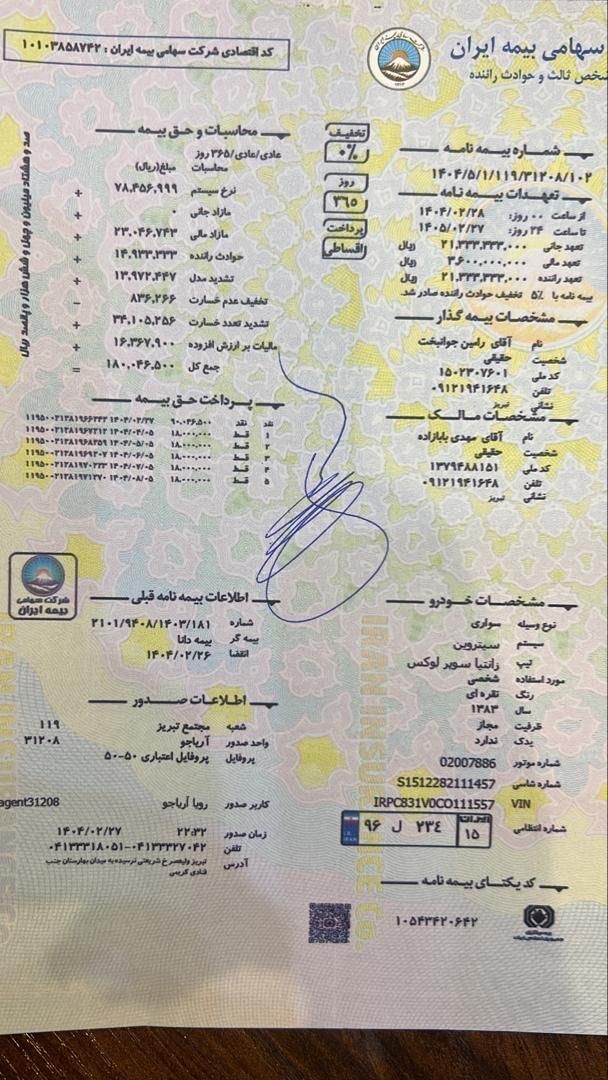 سهامی بیمه ایران
شخص ثالث و حوادث راننده
کد اقتصادی شرکت سهامی بیمه ایران : ۱۰۱۰۳۸۵۸۷۴۲
شماره بیمه نامه
۱۴۰۴/۵/۱/۱۱۹/۳۱۲۰۸/۱۰۲
تعهدات بیمه نامه
از ساعت ۰۰ روز: ۱۴۰۴/۰۲/۲۸
تا ساعت ۲۴ روز: ۱۴۰۵/۰۲/۲۷
تعهد جانی ۲۱.۳۳۳.۳۳۳.۰۰۰ ریال
تعهد مالی ۳.۶۰۰.۰۰۰.۰۰۰ ریال
تعهد راننده ۲۱.۳۳۳.۳۳۳.۰۰۰ ریال
بیمه نامه با ۵٪ تخفیف حوادث راننده صادر شد.
مشخصات بیمه گذار
نام آقای رامین جوانبخت
شخصیت حقیقی
کد ملی ۱۵۰۲۳۰۷۶۰۱
تلفن ۰۹۱۲۱۹۴۱۶۴۸
نشانی تبریز
مشخصات مالک
نام آقای مهدی بابازاده
شخصیت حقیقی
کد ملی ۱۳۷۹۴۸۸۱۵۱
تلفن ۰۹۱۲۱۹۴۱۶۴۸
نشانی تبریز
تخفیف
۰%
روز
۳۶۵
پرداخت
اقساطی
محاسبات و حق بیمه
عادی/عادی/۳۶۵ روز
محاسبات مبلغ(ریال)
نرخ سیستم ۷۸.۴۵۶.۹۹۹ +
مازاد جانی ۰ +
مازاد مالی ۲۳.۰۴۶.۷۴۳ +
حوادث راننده ۱۴.۹۳۳.۳۳۳ +
تشدید مدل ۱۳.۹۷۲.۴۴۷ +
تخفیف عدم خسارت ۸۳۶.۲۶۶ −
تشدید تعدد خسارت ۳۴.۱۰۵.۲۵۶ +
مالیات بر ارزش افزوده ۱۶.۳۶۷.۹۰۰ +
جمع کل ۱۸۰.۰۴۶.۵۰۰ =
صد و هشتاد میلیون و چهل و شش هزار و پانصد ریال
پرداخت حق بیمه
نقد نقد ۹۰.۰۴۶.۵۰۰ ۱۴۰۴/۰۲/۲۷
۱ قسط ۱۸.۰۰۰.۰۰۰ ۱۴۰۴/۰۴/۰۵
۲ قسط ۱۸.۰۰۰.۰۰۰ ۱۴۰۴/۰۵/۰۵
۳ قسط ۱۸.۰۰۰.۰۰۰ ۱۴۰۴/۰۶/۰۵
۴ قسط ۱۸.۰۰۰.۰۰۰ ۱۴۰۴/۰۷/۰۵
۵ قسط ۱۸.۰۰۰.۰۰۰ ۱۴۰۴/۰۸/۰۵
شرکت سهامی
بیمه ایران
اطلاعات بیمه نامه قبلی
شماره ۲۱۰۱/۹۴۰۸/۱۴۰۳/۱۸۱
بیمه گر بیمه دانا
انقضا ۱۴۰۴/۰۲/۲۶
اطلاعات صدور
شعبه مجتمع تبریز ۱۱۹
واحد صدور آریاجو ۳۱۲۰۸
پروفایل پروفایل اعتباری ۵۰-۵۰
کاربر صدور رویا آریاجو agent31208
زمان صدور ۲۲:۳۲ ۱۴۰۴/۰۲/۲۷
تلفن ۰۴۱۳۳۳۱۸۰۵۱-۰۴۱۳۳۳۲۷۰۴۲
آدرس تبریز ولیعصر خ شریعتی نرسیده به میدان بهارستان جنب
قنادی کریمی
مشخصات خودرو
نوع وسیله سواری
سیستم سیتروین
تیپ زانتیا سوپر لوکس
مورد استفاده شخصی
رنگ نقره ای
سال ۱۳۸۳
ظرفیت مجاز
یدک ندارد
شماره موتور 02007886
شماره شاسی S1512282111457
VIN IRPC831V0CO111557
شماره انتظامی ۹۶ ل ۲۳۴ ایران ۱۵
کد یکتای بیمه نامه
۱۰۵۴۳۴۲۰۶۴۲
IRAN INSURANCE Co.